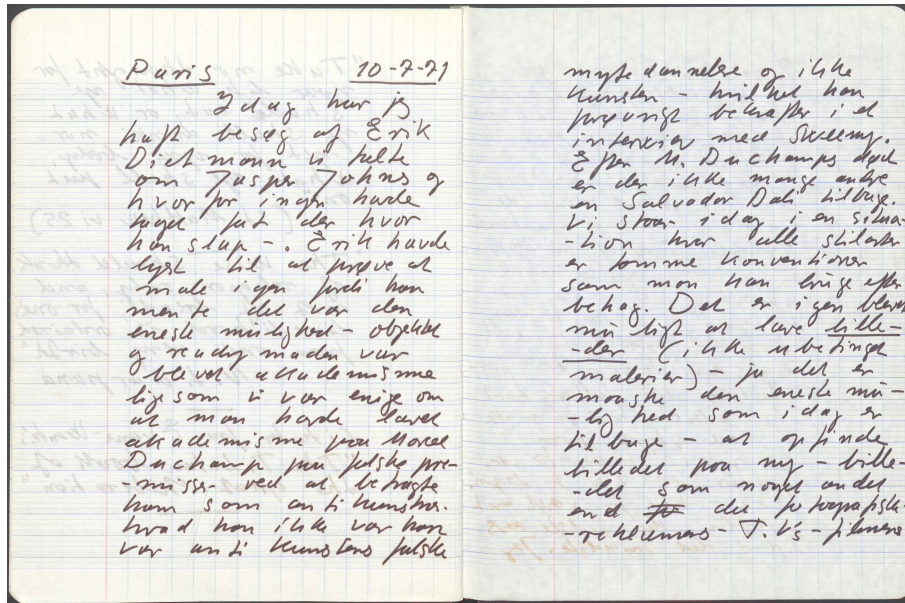 Paris 10-7-71
Idag har jeg
haft besøg af Erik
Dietmann vi talte
om Jasper Johns og
hvorfor ingen havde
taget fat der hvor
han slap -. Erik havde
lyst til at prøve at
male igen fordi han
mente det var den
eneste mulighed - objektet
og readymaden var
blevet akademisme
ligesom vi var enige om
at man havde lavet
akademisme paa Marcel
Duchamp paa falske præ-
-misser ved at betragte
ham som antikunstner
hvad han ikke var han
var anti kunstens falske
mytedannelse og ikke
kunsten - hvilket han
prøvrigt bekræfter i et
interview med
Efter M. Duchamps død
er der ikke mange andre
en Salvador Dali tilbage.
Vi staar idag i en situa-
-tion hvor alle stilarter
er tomme konventioner
som man kan bruge efter
behag. Det er igen blevet
muligt at lave bille-
-der (ikke ubetinget
malerier) - ja det er
maaske den eneste mu-
-lighed som idag er
tilbage - at opfinde
billedet paa ny - bille-
-det som noget andet
end det fotografiske
-reklamens - T.V's - filmens